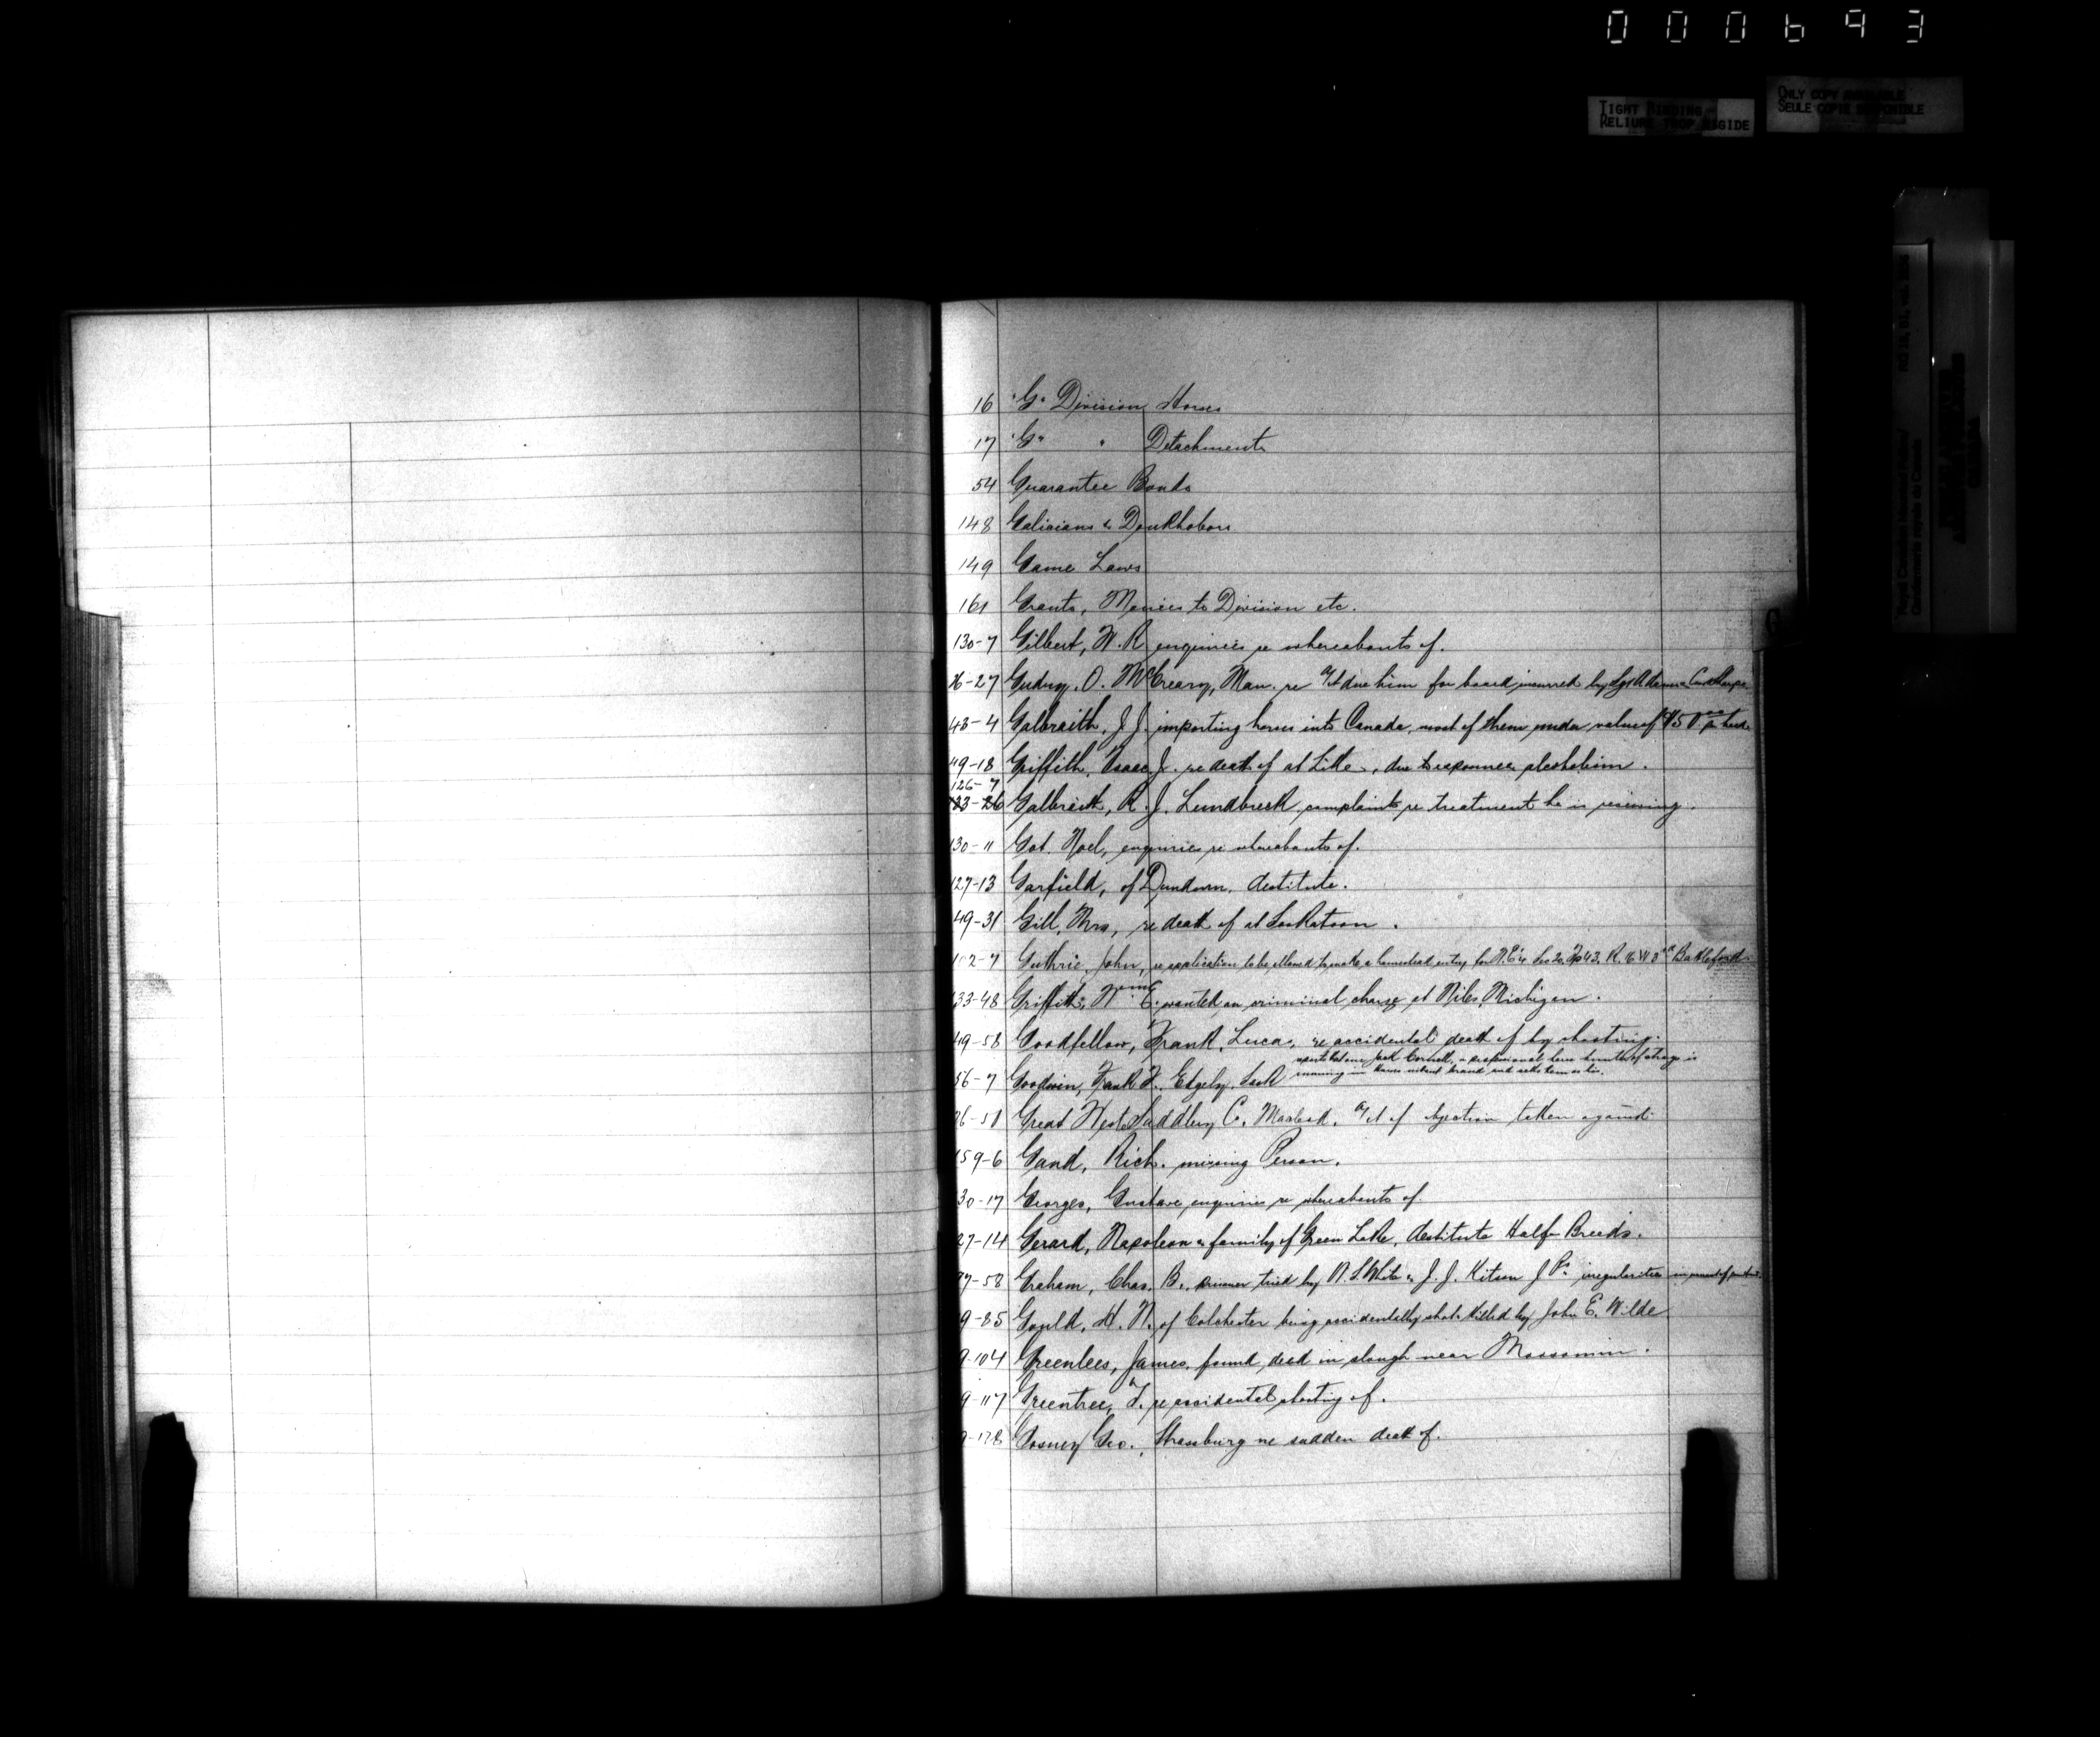 000693
TIGHT BINDING
RELIURE TROP RIGIDE
ONLY COPY AVAILABLE
SEULE COPIE DISPONIBLE
16 "G" Division Horses
17 "G" " Detachments
54 Guarantee Bonds
148 Galicians & Doukhobors
149 Game Laws
161 Grants, Monies to Division etc.
130-7 Gilbert, W. R. enquiries re whereabouts of.
26-27 O. McCreary, Man. re a/ct due him for board incurred by Sgt Adams &
43-4 Galbraith, J. J. importing horses into Canada, most of them under value of $50.00 per head
49-18 Griffith, Isaac J. re death of at Lille, due to exposure & alcoholism.
126-7
Galbraith, R. J. Lundbreck, complaints re treatment he is receiving.
130-11 Got. Noel, enquiries re whereabouts of.
127-13 Garfield, of Dundurn, destitute.
49-31 Gill, Mrs, re death of at Saskatoon.
102-7 Guthrie, John, re application to be allowed to make a homestead entry for N.E¼ Sec 20. Tp 43. R. 16 W 3rd Battleford
133-48 Griffith, Wm E. wanted on criminal charge at Niles, Michigan.
49-58 Goodfellow, Frank, Lucas, re accidental death of by shooting.
56-7 Goodwin, Frank F., Edgely, Sask reports that one Jack Cornell, a professional horse thief is running in horses without brand and sells them as his.
26-51 Great West Saddlery Co. Macleod, a/ct of objection taken against
159-6 Gand, Rich. missing Person.
30-17 Georges, Gustave, enquiries re whereabouts of
27-14 Gerard, Napoleon & family of Green Lake, destitute Half-Breeds.
97-58 Graham, Chas. B., prisoner tried by N. S. White & J. J. Kitson J Ps. irregularities in
9-85 Gould, H. N. of Colchester being accidentally shot & killed by John E. Wilde
9-104 Greenlees, James, found dead in slough near Moosomin.
9-117 Greentree, F. re accidental shooting of.
9-128 Gosney Geo., Strassburg re sudden death of.
G